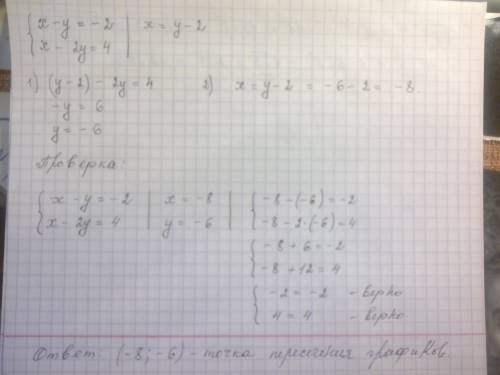 { x - y = -2 | x = y - 2
{ x - 2y = 4 |
1) (y - 2) - 2y = 4 2) x = y - 2 = -6 - 2 = -8.
-y = 6
y = -6
Проверка:
{ x - y = -2 | x = -8 | { -8 - (-6) = -2
{ x - 2y = 4 | y = -6 | { -8 - 2·(-6) = 4
{ -8 + 6 = -2
{ -8 + 12 = 4
{ -2 = -2 - верно
{ 4 = 4 - верно
Ответ: (-8; -6) - точка пересечения графиков.